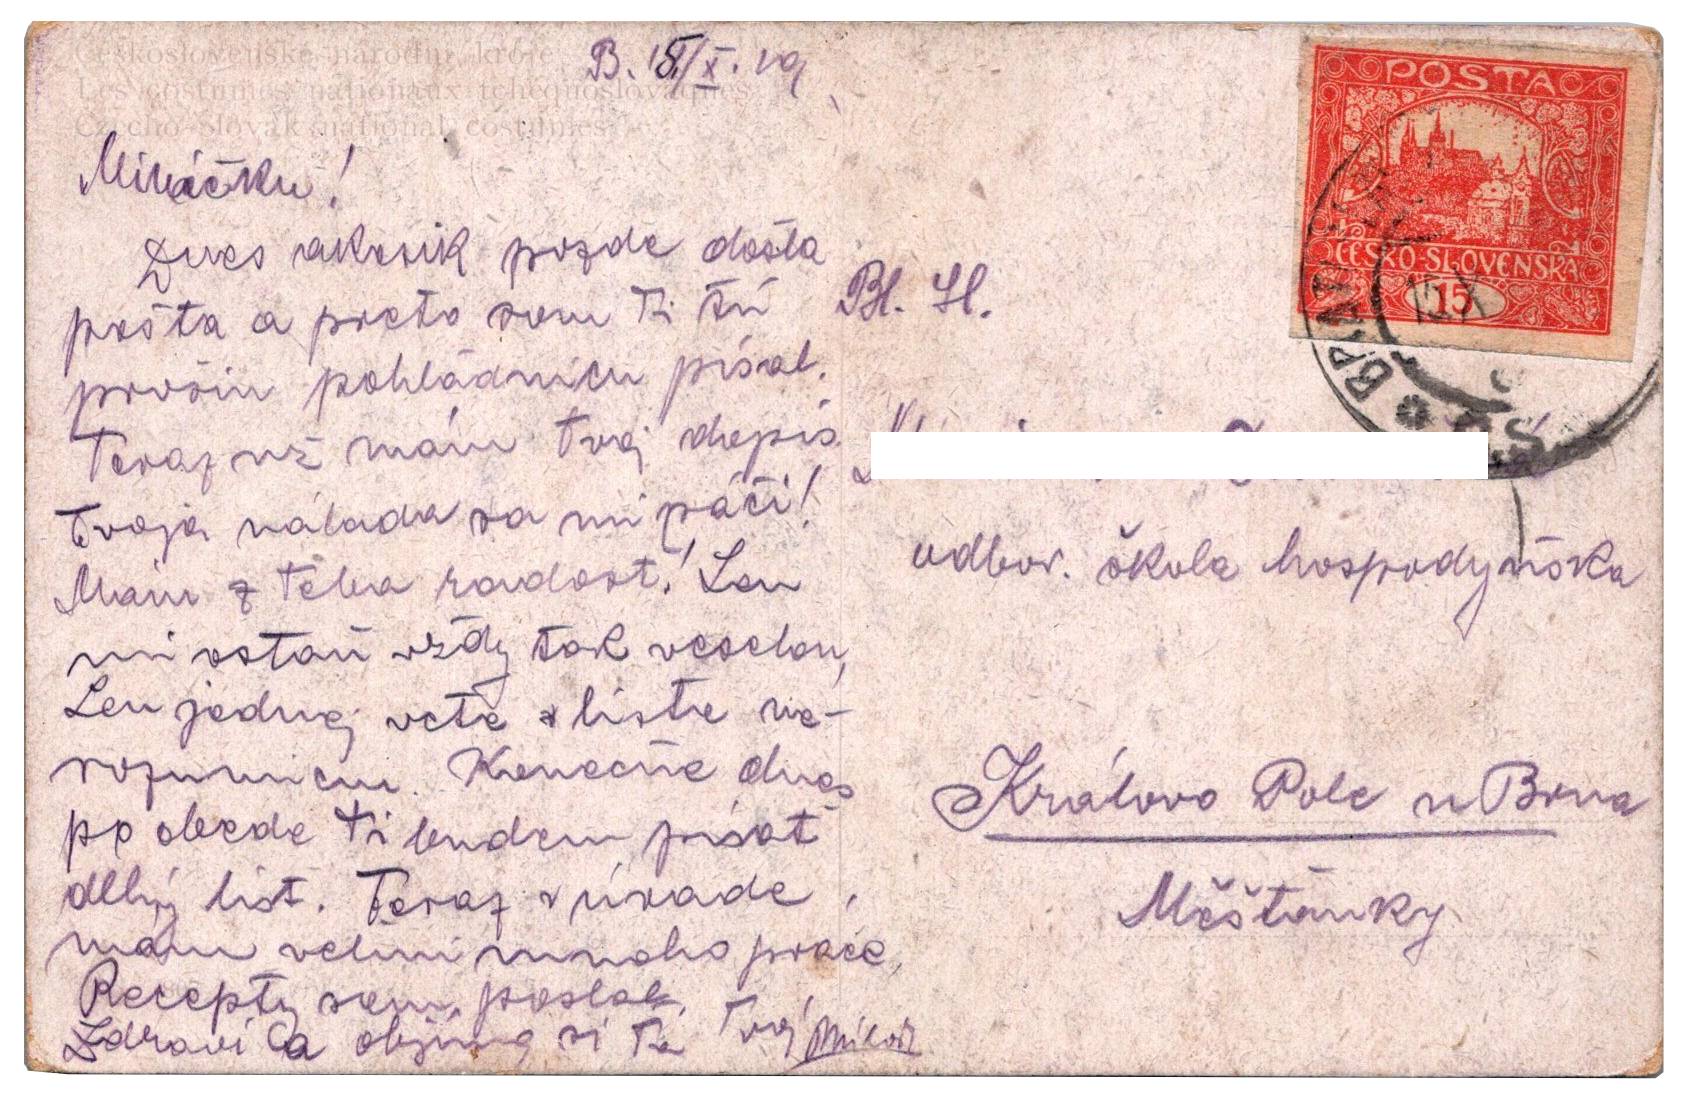 Československé národní kroje
Les costumes nationaux tchéquoslovaques
Czecho-Slovak national costumes
B. 15/X. 19
Miláčku!
Dnes akosik pozde došla
pošta a preto som Ti tú
prvšiu pohládnicu písal.
Teraz už mám Tvoj dopis
Tvoja nálada sa mi páči!
Mám z Teba radosť! Len
mi ostaň vždy tak veselou,
Len jednej vete v liste ne-
rozumiem. Konečne dnes
po obede Ti budem písať
dlhý list. Teraz v úrade
mám velmi mnoho práce,
Recepty som poslal
Zdraví a objíma si Ťa Tvoj Miloš
POSTA
ČESKO-SLOVENSKÁ
15
BRATISLAVA
15 X
ČS
Bl. Sl.
odbor. škola hospodyňská
Královo Pole u Brna
Měšťánky